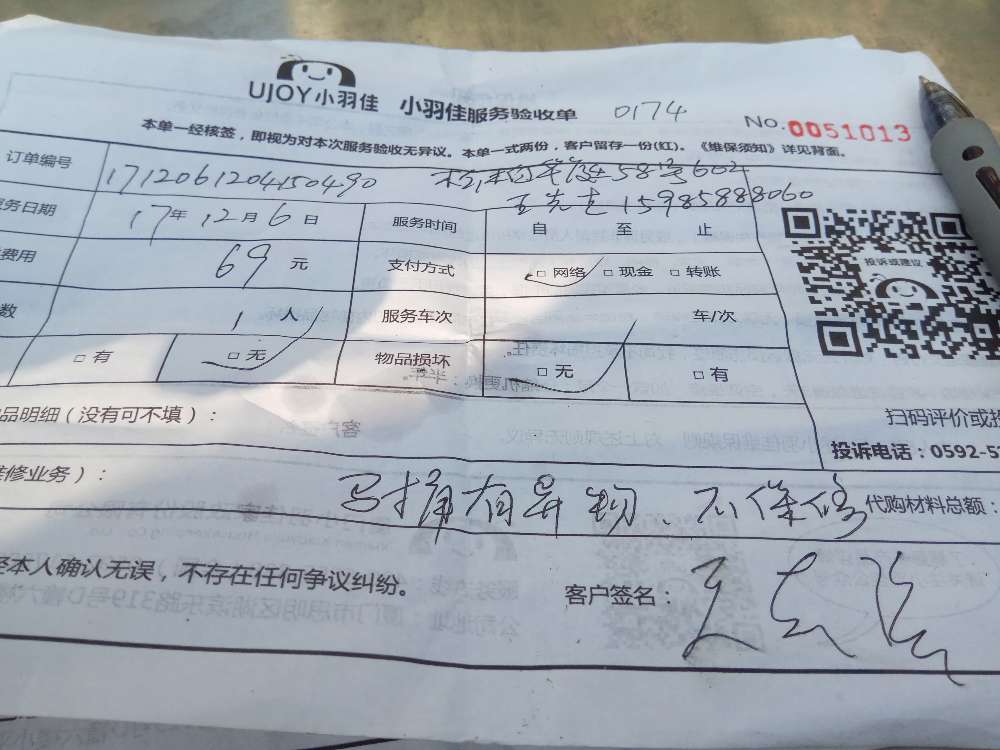 UJOY小羽佳 小羽佳服务验收单 0174 No.0051013
本单一经核签，即视为对本次服务验收无异议。本单一式两份，客户留存一份(红)。《维保须知》详见背面。
订单编号 1712061204150490 58号602
王先生 15985888060
务日期 17年12月6日 服务时间 自 至 止
费用 69元 支付方式 □网络 □现金 □转账
投诉或建议
数 1人 服务车次 车/次
□有 □无 物品损坏 □无 □有
品明细（没有可不填）：
扫码评价或投
投诉电话：0592-5
维修业务）： 马桶有异物、不保修 代购材料总额：
经本人确认无误，不存在任何争议纠纷。
客户签名：